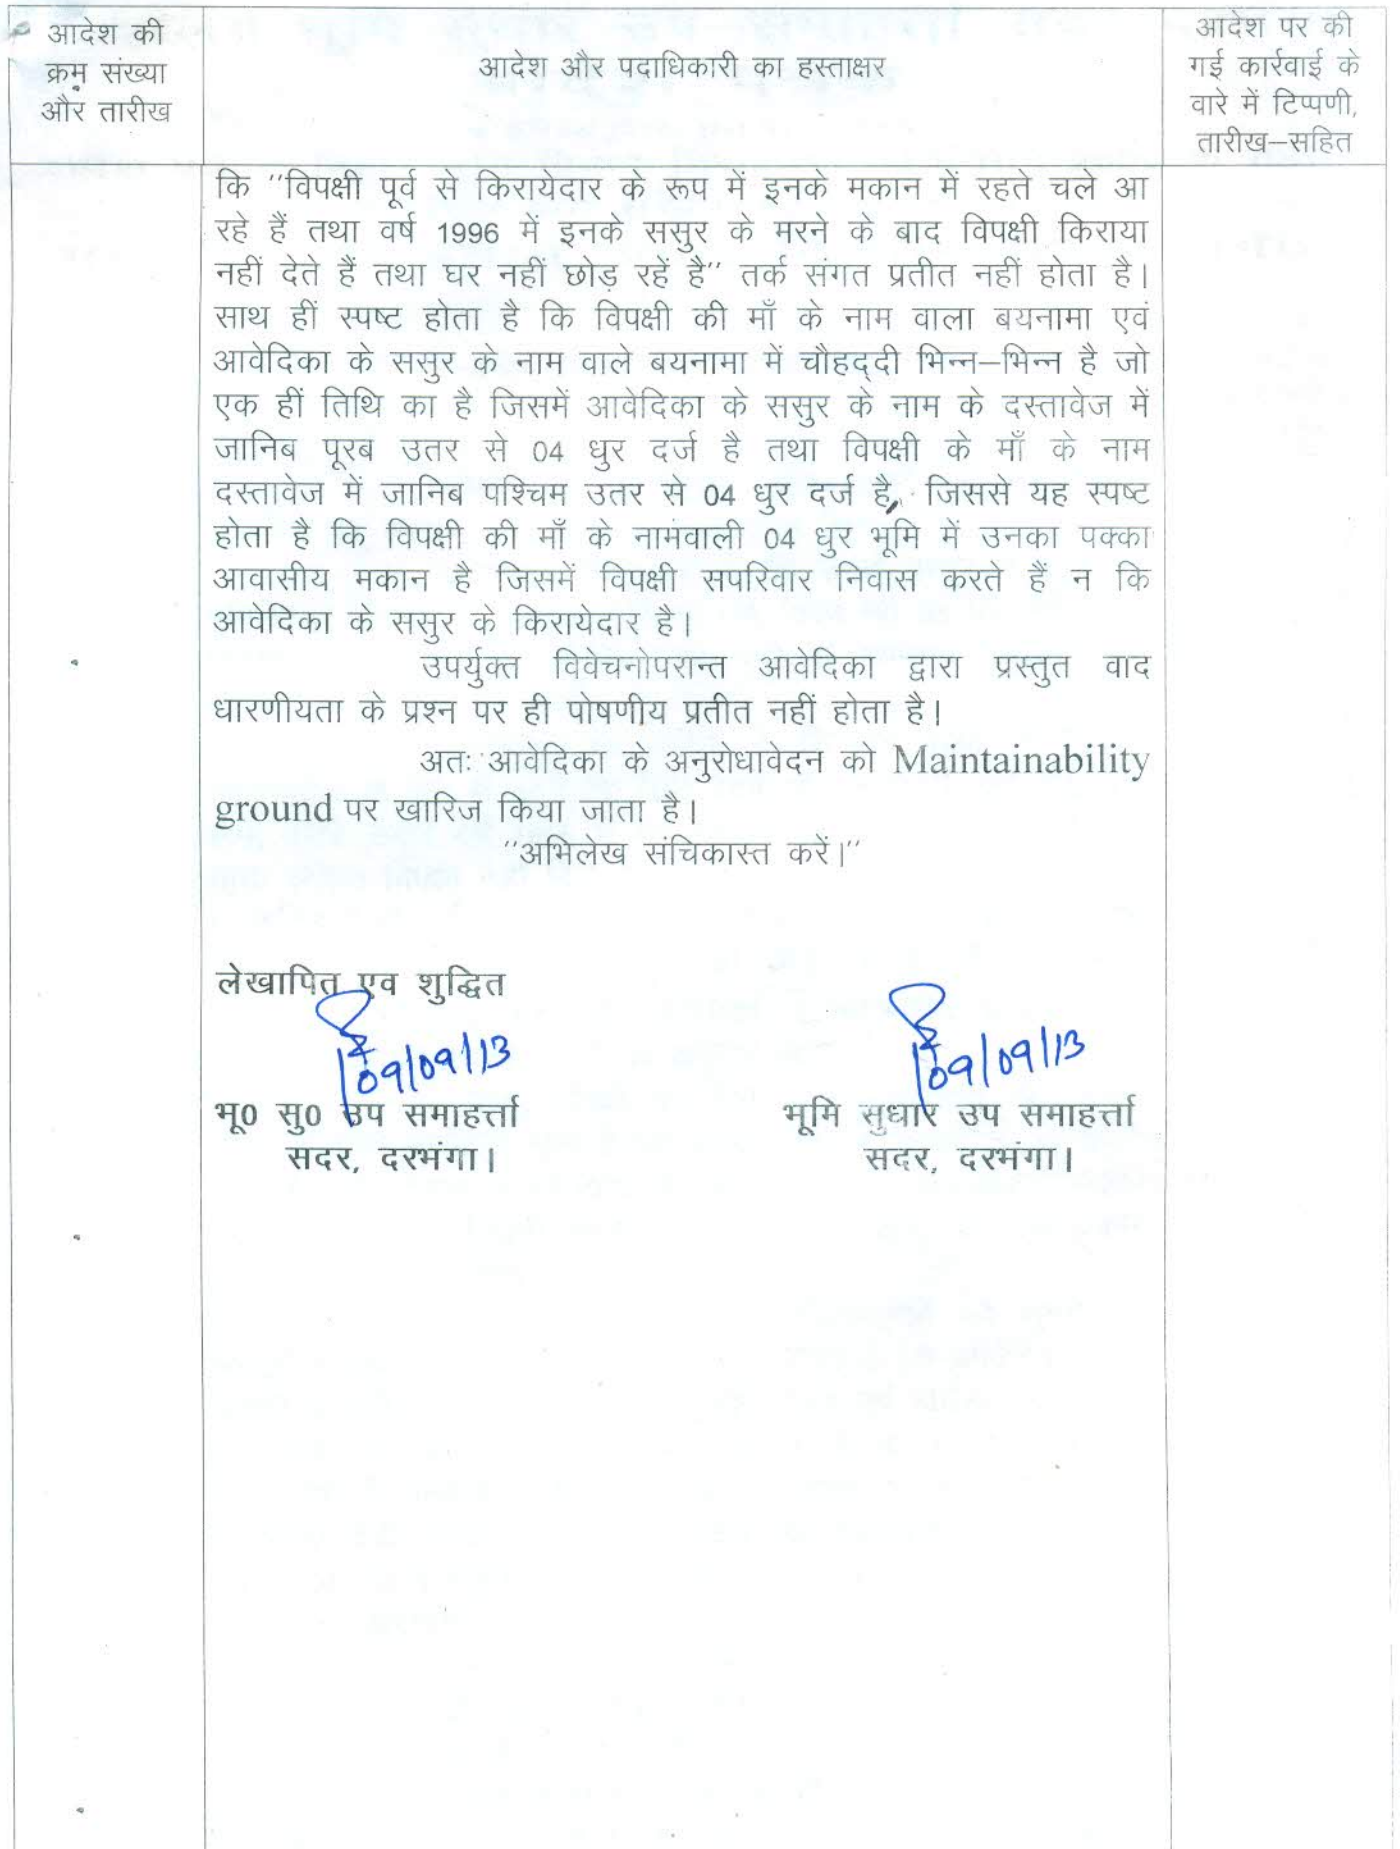 आदेश की
क्रम संख्या
और तारीख
आदेश और पदाधिकारी का हस्ताक्षर
आदेश पर की
गई कार्रवाई के
वारे में टिप्पणी,
तारीख–सहित
कि ''विपक्षी पूर्व से किरायेदार के रूप में इनके मकान में रहते चले आ
रहे हैं तथा वर्ष 1996 में इनके ससुर के मरने के बाद विपक्षी किराया
नहीं देते हैं तथा घर नहीं छोड़ रहें है'' तर्क संगत प्रतीत नहीं होता है।
साथ हीं स्पष्ट होता है कि विपक्षी की माँ के नाम वाला बयनामा एवं
आवेदिका के ससुर के नाम वाले बयनामा में चौहद्दी भिन्न–भिन्न है जो
एक हीं तिथि का है जिसमें आवेदिका के ससुर के नाम के दस्तावेज में
जानिब पूरब उतर से 04 धुर दर्ज है तथा विपक्षी के माँ के नाम
दस्तावेज में जानिब पश्चिम उतर से 04 धुर दर्ज है, जिससे यह स्पष्ट
होता है कि विपक्षी की माँ के नामंवाली 04 धुर भूमि में उनका पक्का
आवासीय मकान है जिसमें विपक्षी सपरिवार निवास करते हैं न कि
आवेदिका के ससुर के किरायेदार है।
उपर्युक्त विवेचनोपरान्त आवेदिका द्वारा प्रस्तुत वाद
धारणीयता के प्रश्न पर ही पोषणीय प्रतीत नहीं होता है।
अतः आवेदिका के अनुरोधावेदन को Maintainability
ground पर खारिज किया जाता है।
''अभिलेख संचिकास्त करें।''
लेखापित एव शुद्धित
09/09/13
09/09/13
भू0 सु0 उप समाहर्त्ता
सदर, दरभंगा।
भूमि सुधार उप समाहर्त्ता
सदर, दरभंगा।